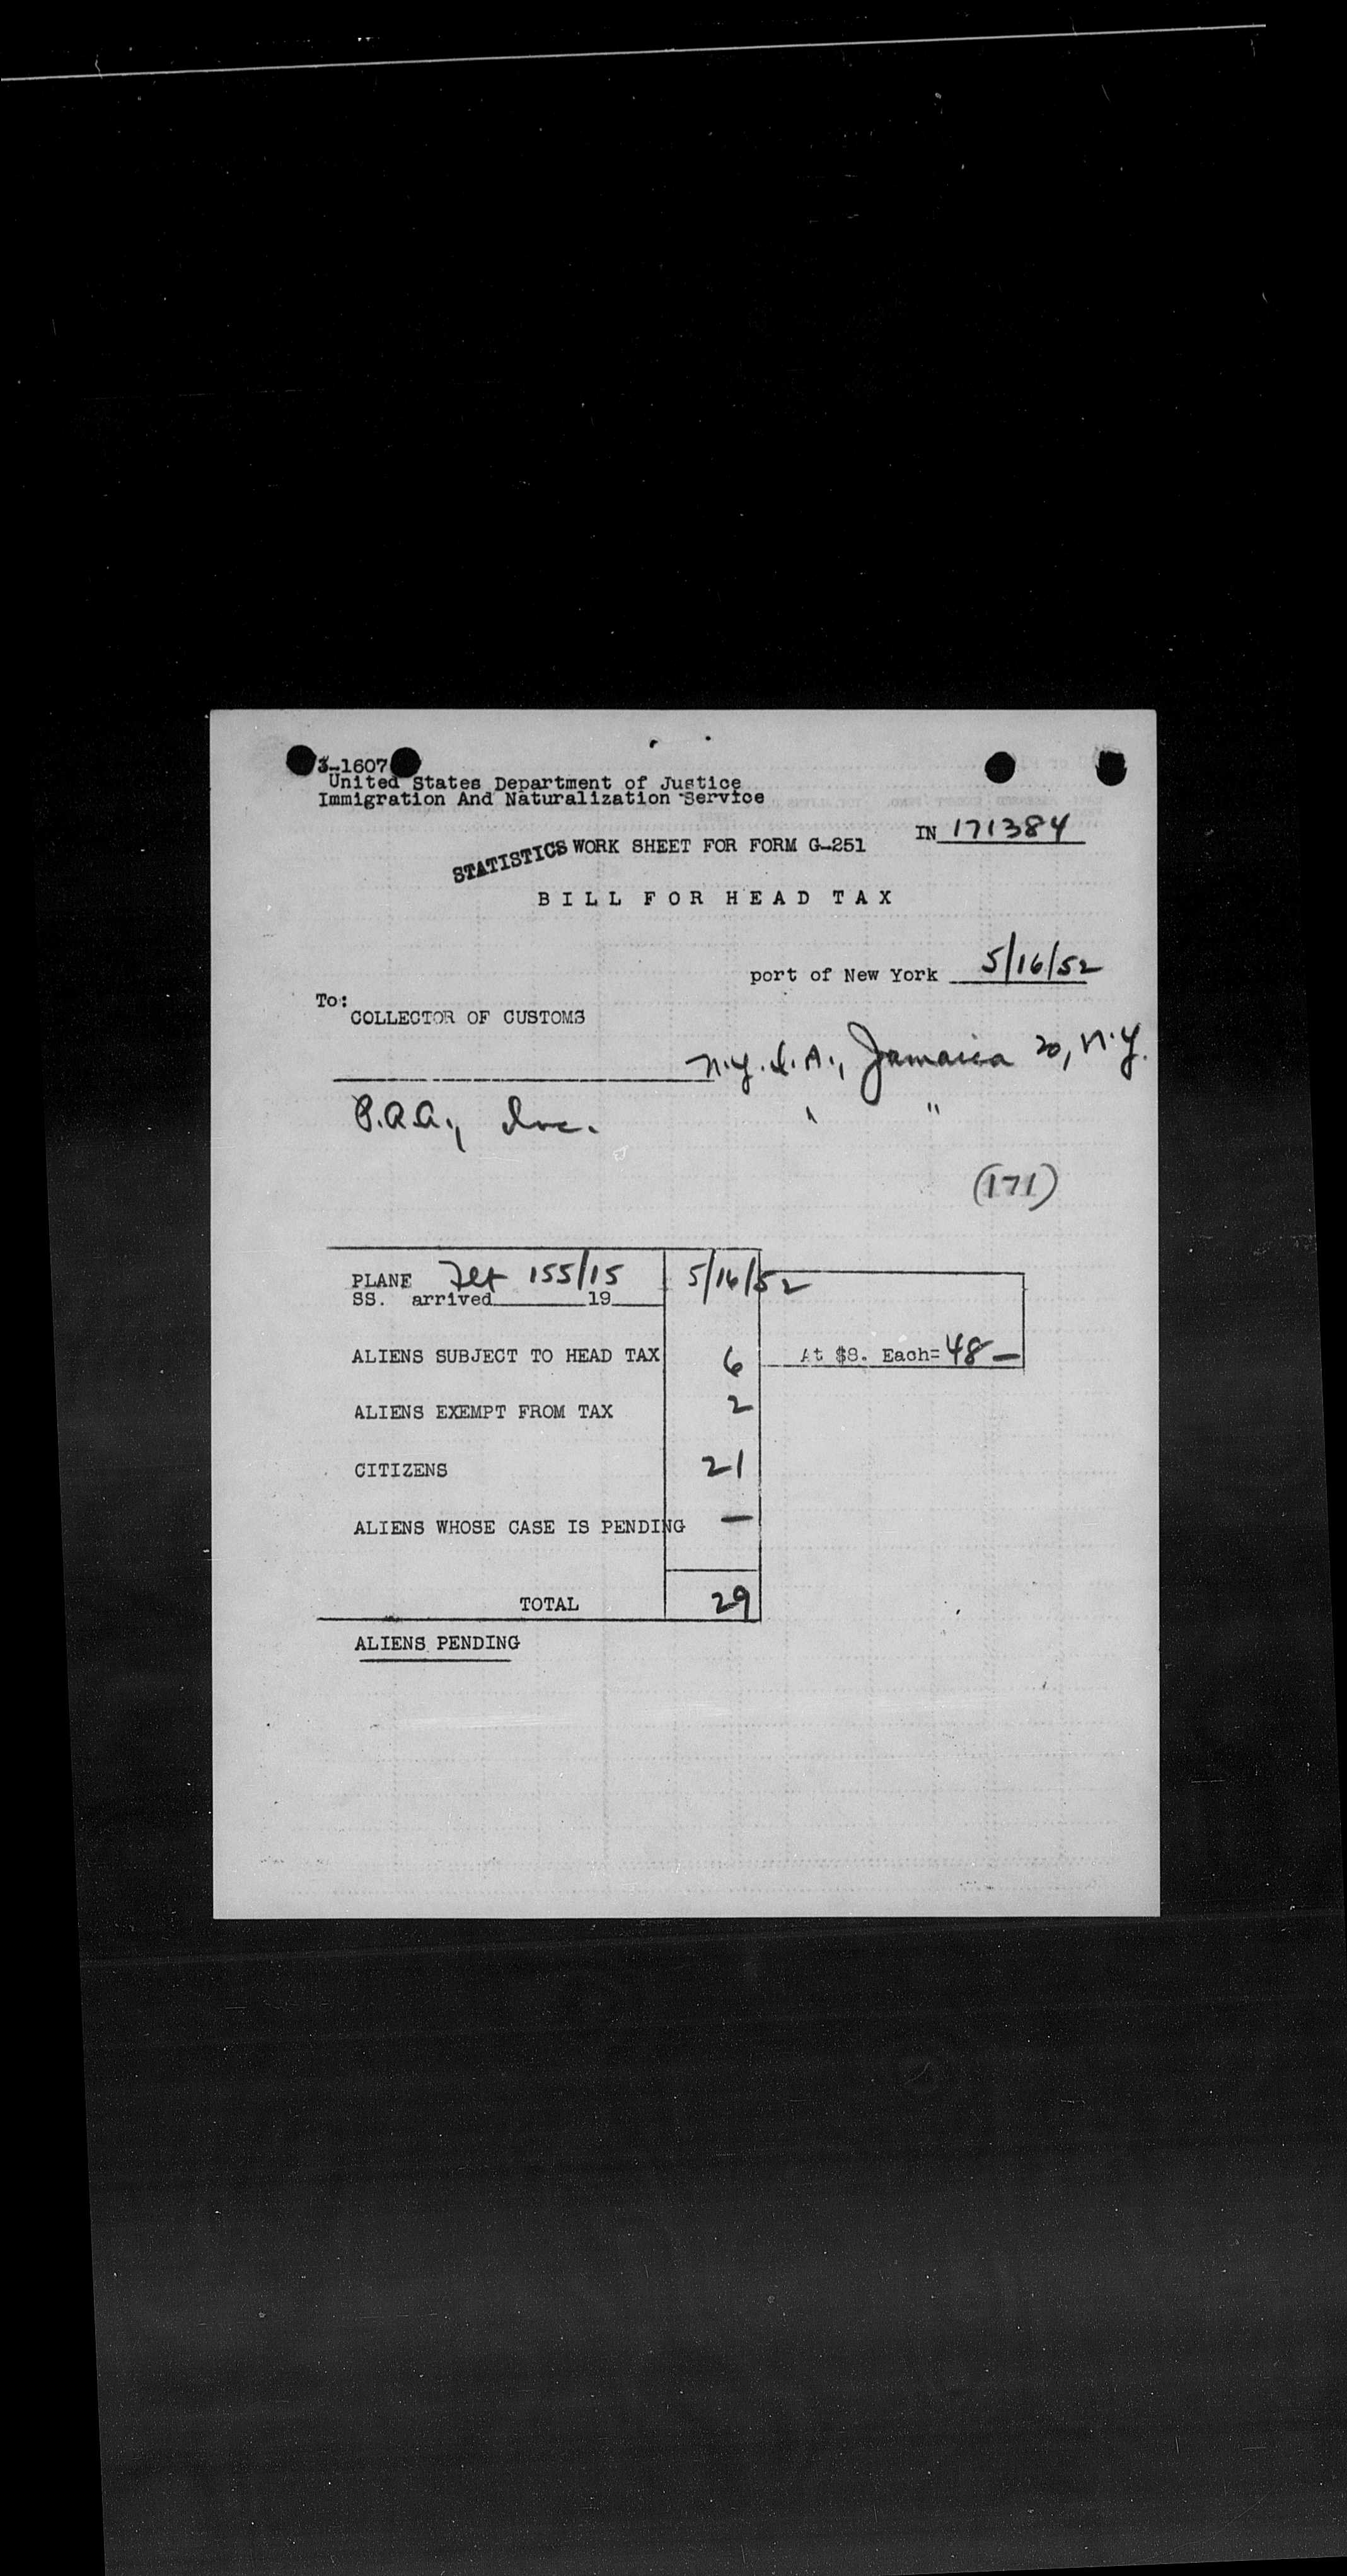 3-1607
United States Department of Justice
Immigration And Naturalization Service
IN 171384
STATISTICS WORK SHEET FOR FORM G-251
BILL FOR HEAD TAX
port of New York 5/16/52
To:
COLLECTOR OF CUSTOMS
N.Y.I.A., Jamaica 30, N.Y.
P.A.A., Inc. " "
(171)
PLANE Flt 155/15 5/16/52
SS. arrived 19
ALIENS SUBJECT TO HEAD TAX 6 At $8. Each= 48 —
ALIENS EXEMPT FROM TAX 2
CITIZENS 21
ALIENS WHOSE CASE IS PENDING —
TOTAL 29
ALIENS PENDING